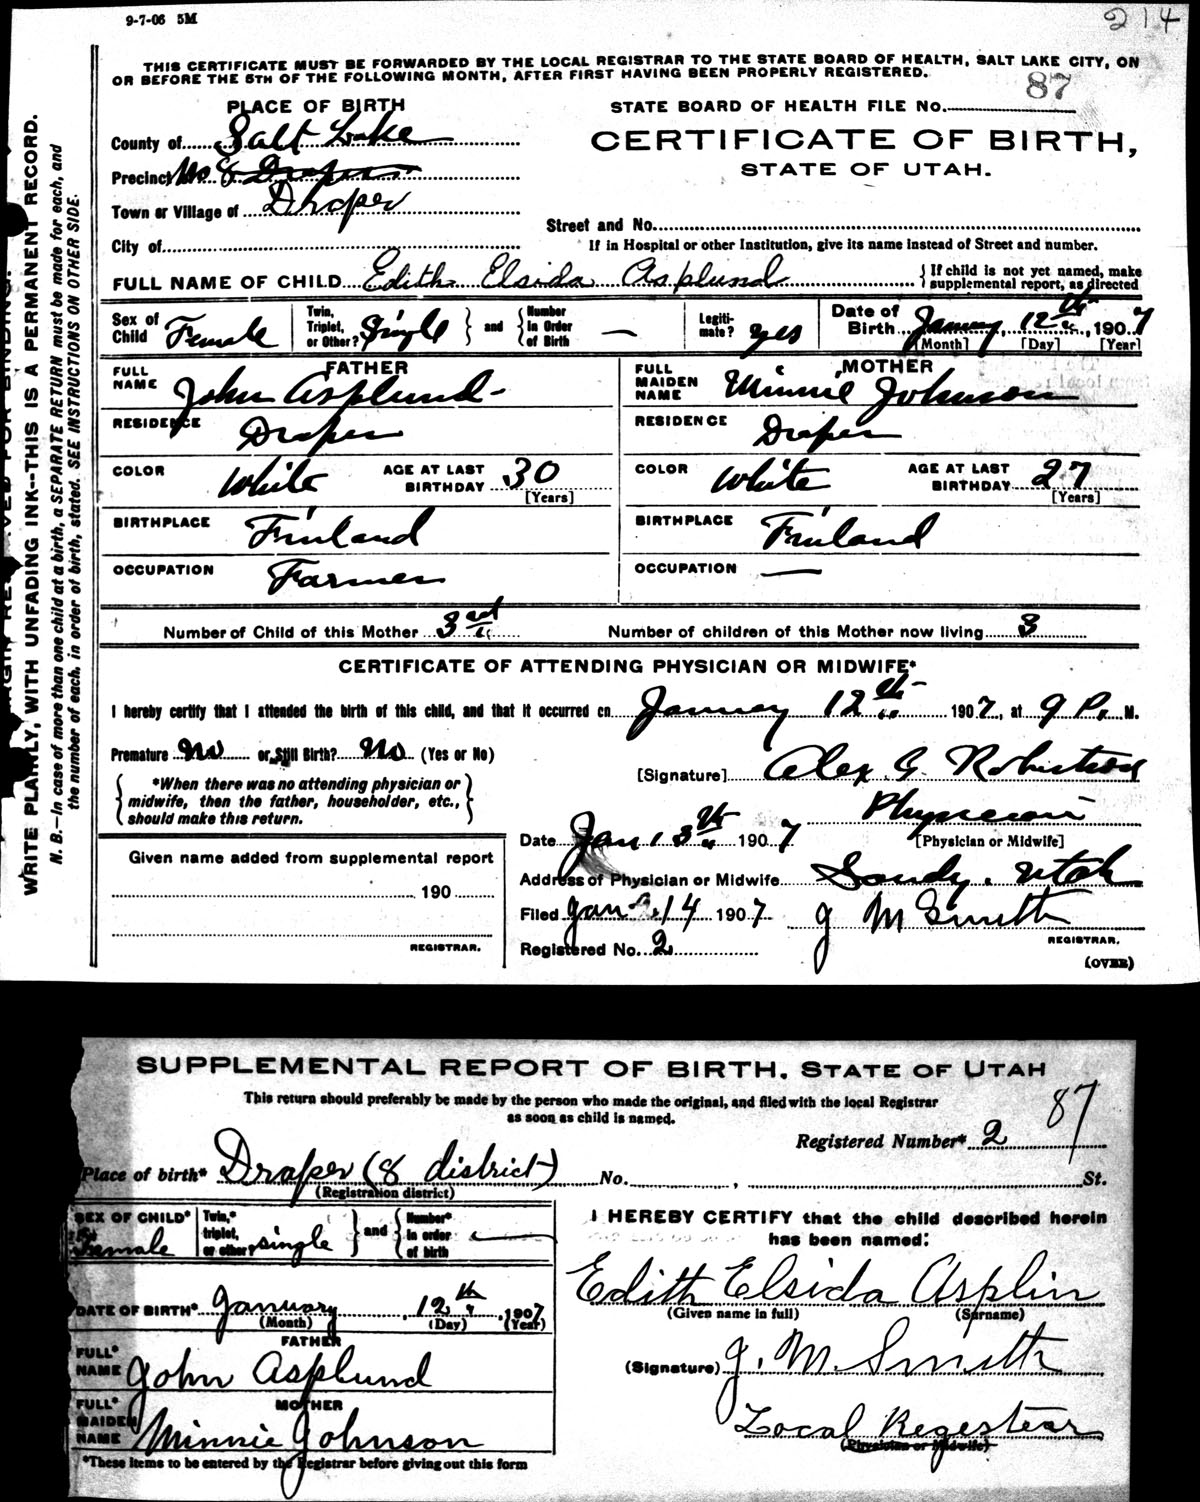 9-7-06 5M
214
THIS CERTIFICATE MUST BE FORWARDED BY THE LOCAL REGISTRAR TO THE STATE BOARD OF HEALTH, SALT LAKE CITY, ON
OR BEFORE THE 5TH OF THE FOLLOWING MONTH, AFTER FIRST HAVING BEEN PROPERLY REGISTERED.
WRITE PLAINLY, WITH UNFADING INK--THIS IS A PERMANENT RECORD.
N. B.—In case of more than one child at a birth, a SEPARATE RETURN must be made for each, and
the number of each, in order of birth, stated. SEE INSTRUCTIONS ON OTHER SIDE.
PLACE OF BIRTH
STATE BOARD OF HEALTH FILE No. 87
County of Salt Lake
CERTIFICATE OF BIRTH,
STATE OF UTAH.
Precinct No 8 Draper
Town or Village of Draper
Street and No.
City of
If in Hospital or other Institution, give its name instead of Street and number.
FULL NAME OF CHILD Edith Elsida Asplund
If child is not yet named, make
supplemental report, as directed
Sex of Child Female
Twin, Triplet, or Other? Single
and Number in Order of Birth —
Legiti-mate? yes
Date of Birth January 12th, 1907
[Month] [Day] [Year]
FATHER
FULL NAME John Asplund
RESIDENCE Draper
COLOR White AGE AT LAST BIRTHDAY 30
[Years]
BIRTHPLACE Finland
OCCUPATION Farmer
MOTHER
FULL MAIDEN NAME Minnie Johnson
RESIDENCE Draper
COLOR White AGE AT LAST BIRTHDAY 27
[Years]
BIRTHPLACE Finland
OCCUPATION —
Number of Child of this Mother 3rd
Number of children of this Mother now living 3
CERTIFICATE OF ATTENDING PHYSICIAN OR MIDWIFE*
I hereby certify that I attended the birth of this child, and that it occurred on January 12th 1907, at 9 P. M.
Premature No or Still Birth? No (Yes or No)
[Signature] Alex. G. Robertson
*When there was no attending physician or
midwife, then the father, householder, etc.,
should make this return.
Physician
[Physician or Midwife]
Date Jan 13th 1907
Address of Physician or Midwife Sandy. Utah
Filed Jan 14 1907 J M Smith
REGISTRAR.
Registered No. 2
(OVER)
Given name added from supplemental report
190
REGISTRAR.
SUPPLEMENTAL REPORT OF BIRTH. STATE OF UTAH
This return should preferably be made by the person who made the original, and filed with the local Registrar
as soon as child is named.
87
Registered Number* 2
Place of birth* Draper (8 district) No. , St.
(Registration district)
SEX OF CHILD* Female
Twin,* triplet, or other? single
and Number* in order of birth —
DATE OF BIRTH* January 12th, 1907
(Month) (Day) (Year)
FATHER
FULL* NAME John Asplund
MOTHER
FULL* MAIDEN NAME Minnie Johnson
*These items to be entered by the Registrar before giving out this form
I HEREBY CERTIFY that the child described herein
has been named:
Edith Elsida Asplin
(Given name in full) (Surname)
(Signature) J. M. Smith
Local Regestrar
(Physician or Midwife)